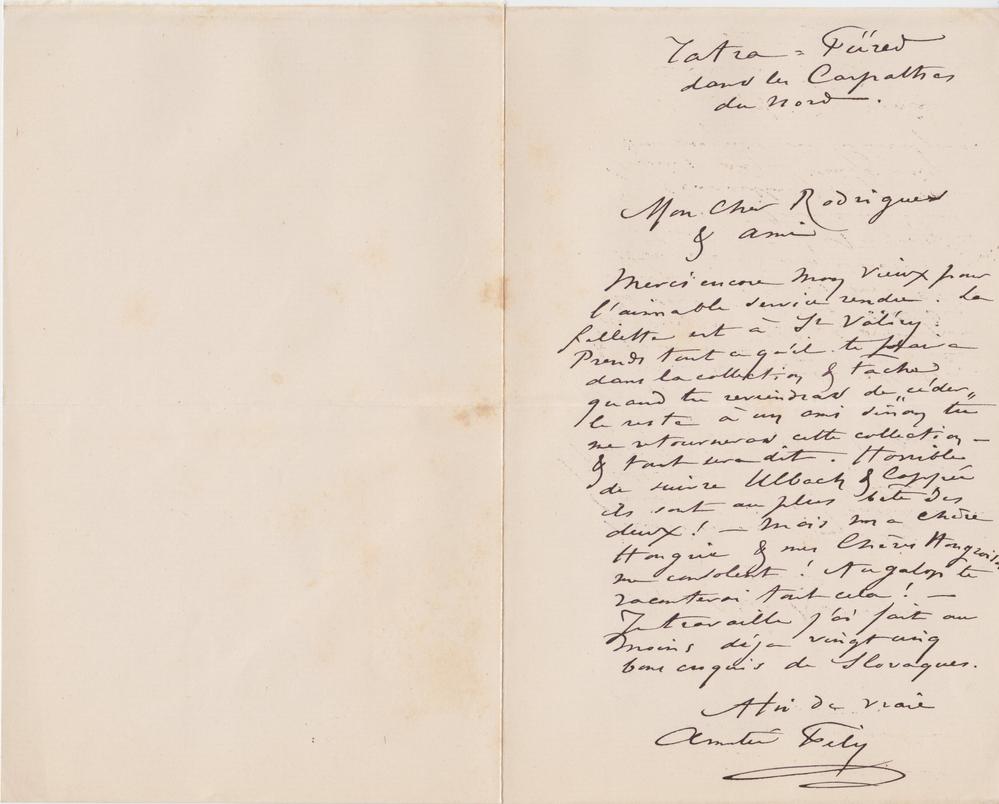 Tatra = Füred
dans les Carpathes
du Nord.
Mon Cher Rodrigues
& ami
Merci encore mon vieux pour
l'aimable service rendu. La
fillette est à St Valéry.
Prends tout ce qu'il te plaira
dans la collection & tache
quand tu reviendras de „céder„
le reste à un ami sinon tu
me retourneras cette collection –
& tout sera dit. Horrible
de suivre Ulbach & Coppée
ils sont au plus bête des
deux ! – Mais ma chère
Hongrie & mes Chers Hongrois
me consolent ! Au galop te
raconterai tout cela ! –
Je travaille j'ai fait au
moins déja vingt cinq
bons croquis de Slovaques.
A toi de vraie
amitié Fély